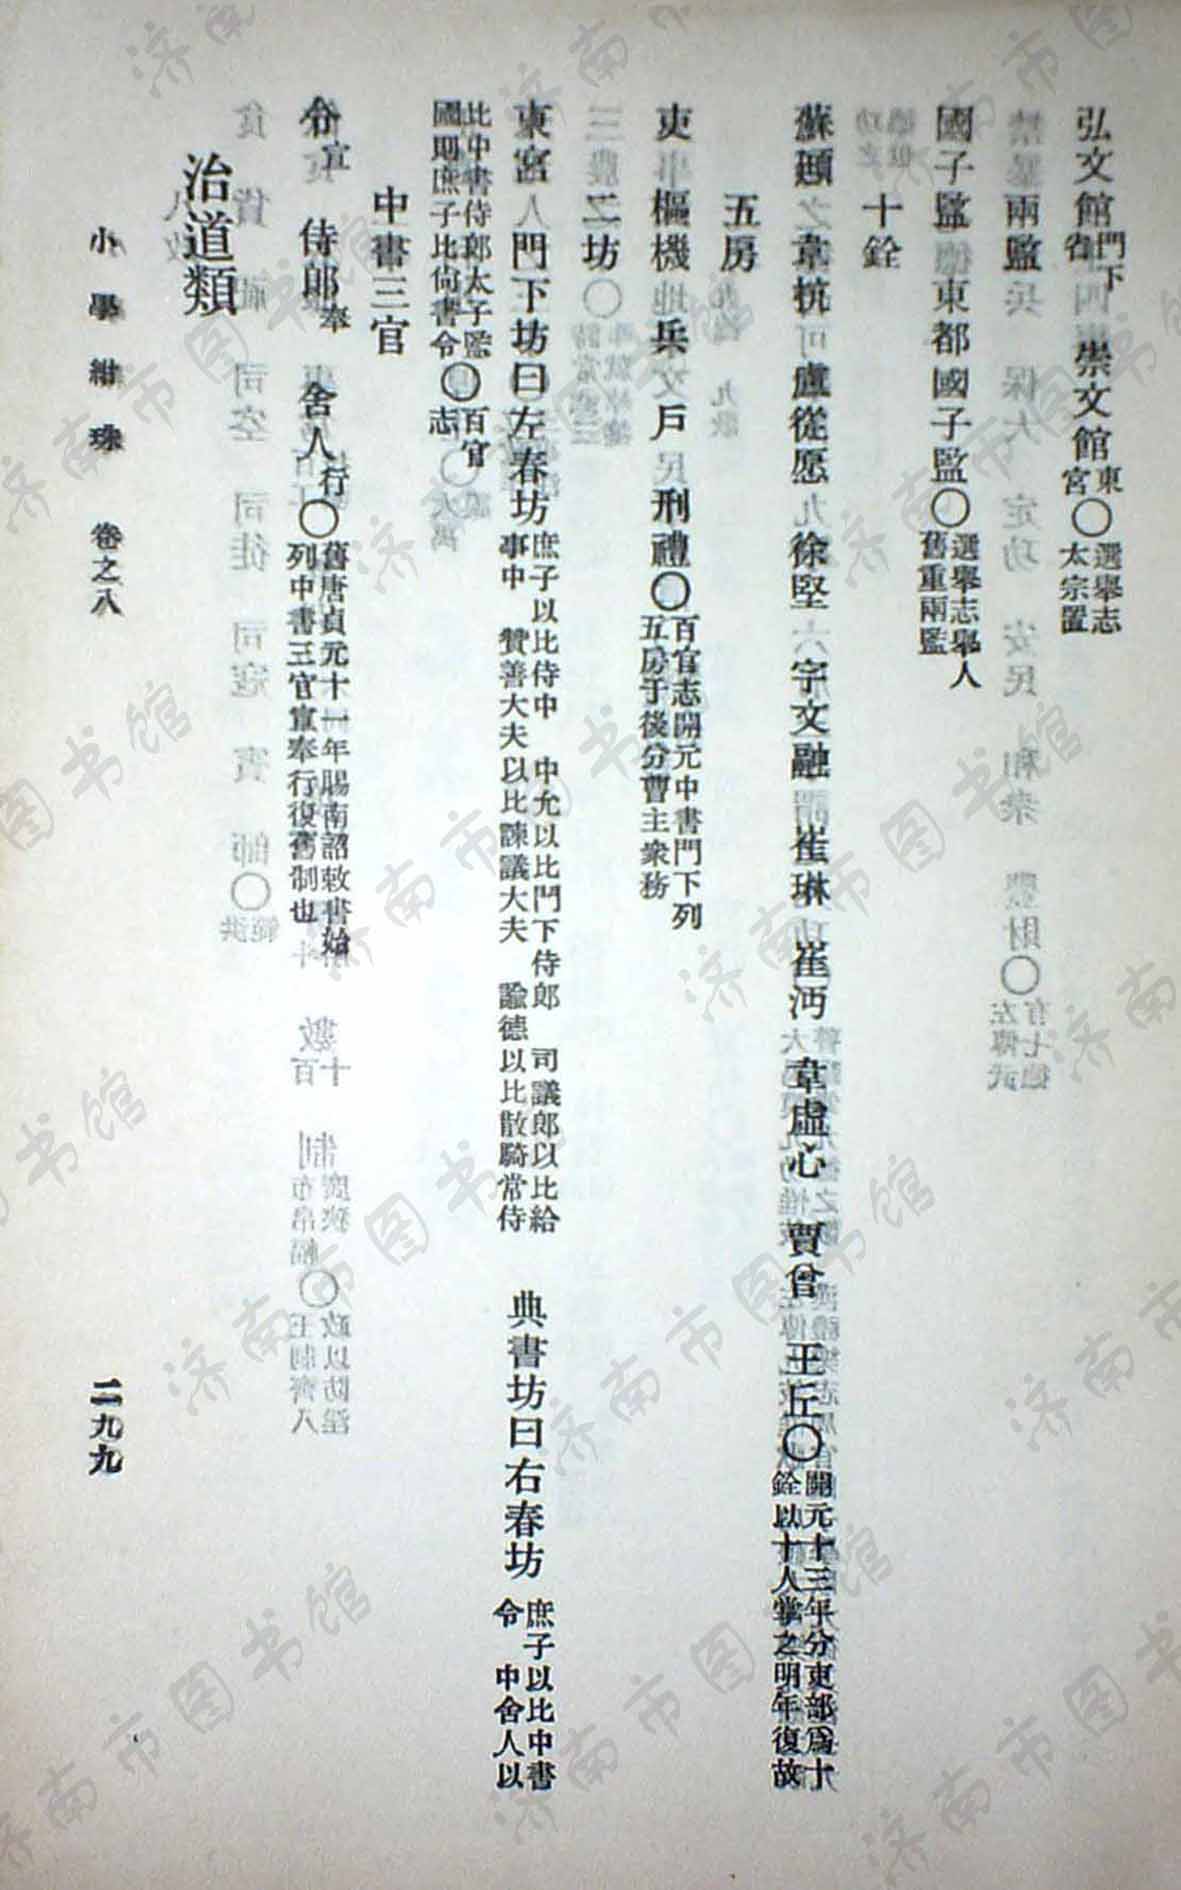 弘文館門下省　崇文館東宮〇選舉志太宗置
兩監
國子監　東都國子監〇選舉志舉人舊重兩監
十銓
蘇頲　韋抗　盧從愿　徐堅　宇文融　崔琳　崔沔　韋虛心　賈曾　王丘〇開元十三年分吏部爲十銓以十人掌之明年復故
五房
吏　樞機　兵　戶　刑禮〇百官志開元中書門下列五房于後分曹主衆務
二坊
東宮　門下坊曰左春坊庶子以比侍中　中允以比門下侍郎　司議郎以比給事中　贊善大夫以比諫議大夫　諭德以比散騎常侍　典書坊曰右春坊庶子以比中書令　中舍人以
比中書侍郎太子監國則庶子比尙書令〇百官志
中書三官
令宣　侍郎奉　舍人行〇舊唐貞元十一年賜南詔敕書始列中書三官宣奉行復舊制也
治道類
小學紺珠　卷之八　二九九
济南市图书馆